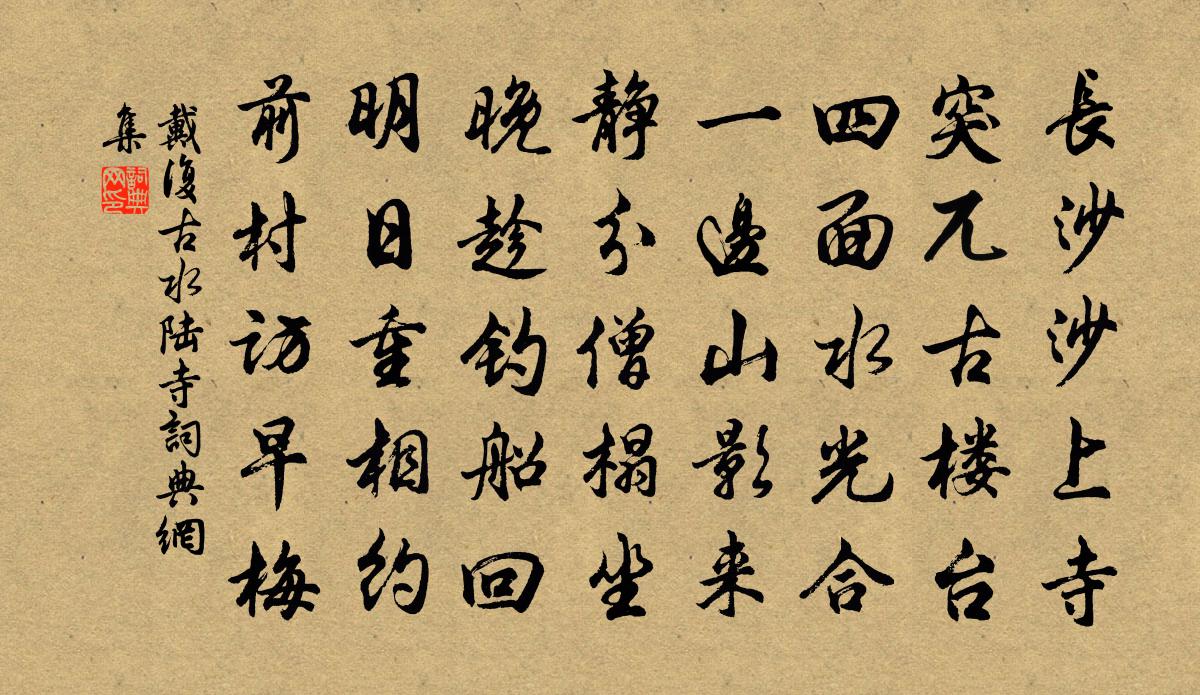 長沙沙上寺
突兀古楼台
四面水光合
一邊山影来
静分僧榻坐
晚趁釣船回
明日重相約
前村訪早梅
戴復古水陆寺詞典網
集
詞典网印